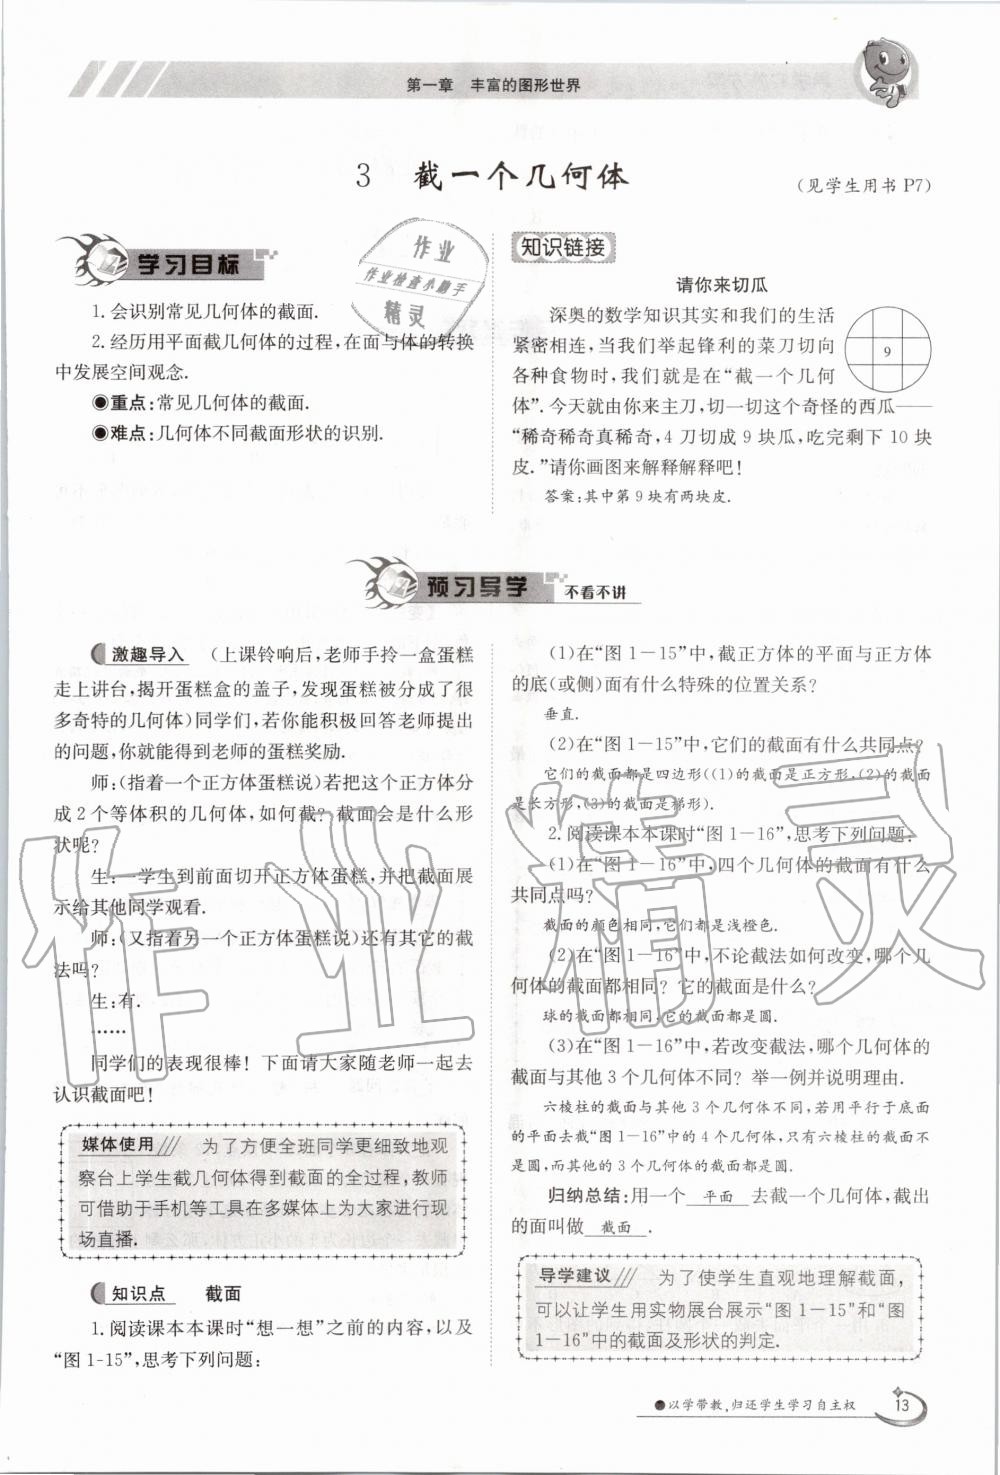 第一章　丰富的图形世界
3　截一个几何体
(见学生用书 P7)
学习目标
1. 会识别常见几何体的截面.
2. 经历用平面截几何体的过程,在面与体的转换
中发展空间观念.
◉重点:常见几何体的截面.
◉难点:几何体不同截面形状的识别.
作业
作业检查小助手
精灵
知识链接
请你来切瓜
深奥的数学知识其实和我们的生活
紧密相连,当我们举起锋利的菜刀切向
各种食物时,我们就是在“截一个几何
体”.今天就由你来主刀,切一切这个奇怪的西瓜——
“稀奇稀奇真稀奇,4 刀切成 9 块瓜,吃完剩下 10 块
皮.”请你画图来解释解释吧!
9
答案:其中第 9 块有两块皮.
预习导学　不看不讲
激趣导入　(上课铃响后,老师手拎一盒蛋糕
走上讲台,揭开蛋糕盒的盖子,发现蛋糕被分成了很
多奇特的几何体)同学们,若你能积极回答老师提出
的问题,你就能得到老师的蛋糕奖励.
师:(指着一个正方体蛋糕说)若把这个正方体分
成 2 个等体积的几何体,如何截? 截面会是什么形
状呢?
生:一学生到前面切开正方体蛋糕,并把截面展
示给其他同学观看.
师:(又指着另一个正方体蛋糕说)还有其它的截
法吗?
生:有.
……
同学们的表现很棒! 下面请大家随老师一起去
认识截面吧!
媒体使用　为了方便全班同学更细致地观
察台上学生截几何体得到截面的全过程,教师
可借助于手机等工具在多媒体上为大家进行现
场直播.
知识点　截面
1. 阅读课本本课时“想一想”之前的内容,以及
“图 1-15”,思考下列问题:
(1)在“图 1－15”中,截正方体的平面与正方体
的底(或侧)面有什么特殊的位置关系?
垂直.
(2)在“图 1－15”中,它们的截面有什么共同点?
它们的截面都是四边形((1)的截面是正方形,(2)的截面
是长方形,(3)的截面是梯形).
2. 阅读课本本课时“图 1－16”,思考下列问题.
(1)在“图 1－16”中,四个几何体的截面有什么
共同点吗?
截面的颜色相同,它们都是浅橙色.
(2)在“图 1－16”中,不论截法如何改变,哪个几
何体的截面都相同? 它的截面是什么?
球的截面都相同,它的截面都是圆.
(3)在“图 1－16”中,若改变截法,哪个几何体的
截面与其他 3 个几何体不同? 举一例并说明理由.
六棱柱的截面与其他 3 个几何体不同,若用平行于底面
的平面去截“图 1－16”中的 4 个几何体,只有六棱柱的截面不
是圆,而其他的 3 个几何体的截面都是圆.
归纳总结:用一个 平面 去截一个几何体,截出
的面叫做 截面 .
导学建议　为了使学生直观地理解截面,
可以让学生用实物展台展示“图 1－15”和“图
1－16”中的截面及形状的判定.
作业精灵
●以学带教,归还学生学习自主权
13